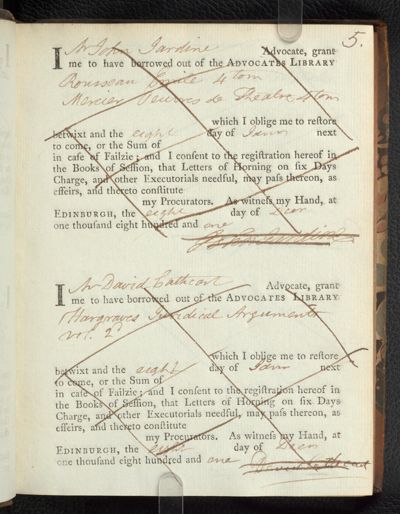 5.
I Mr John Jardine Advocate, grant
me to have borrowed out of the ADVOCATES LIBRARY
Rousseau Emile 4 tom
Mercier Pieces de Theatre 4 tom
which I oblige me to reſtore
betwixt and the eight day of Janry next
to come, or the Sum of
in caſe of Failzie; and I conſent to the regiſtration hereof in
the Books of Seſſion, that Letters of Horning on ſix Days
Charge, and other Executorials needful, may paſs thereon, as
effeirs, and thereto conſtitute
my Procurators. As witneſs my Hand, at
EDINBURGH, the eight day of Decer
one thouſand eight hundred and one
John Jardine
I Mr David Cathcart Advocate, grant
me to have borrowed out of the ADVOCATES LIBRARY
Hargraves Juridical Arguments
vol. 2d
which I oblige me to reſtore
betwixt and the eight day of Janry next
to come, or the Sum of
in caſe of Failzie; and I conſent to the regiſtration hereof in
the Books of Seſſion, that Letters of Horning on ſix Days
Charge, and other Executorials needful, may paſs thereon, as
effeirs, and thereto conſtitute
my Procurators. As witneſs my Hand, at
EDINBURGH, the eight day of Decer
one thouſand eight hundred and one
David Cathcart